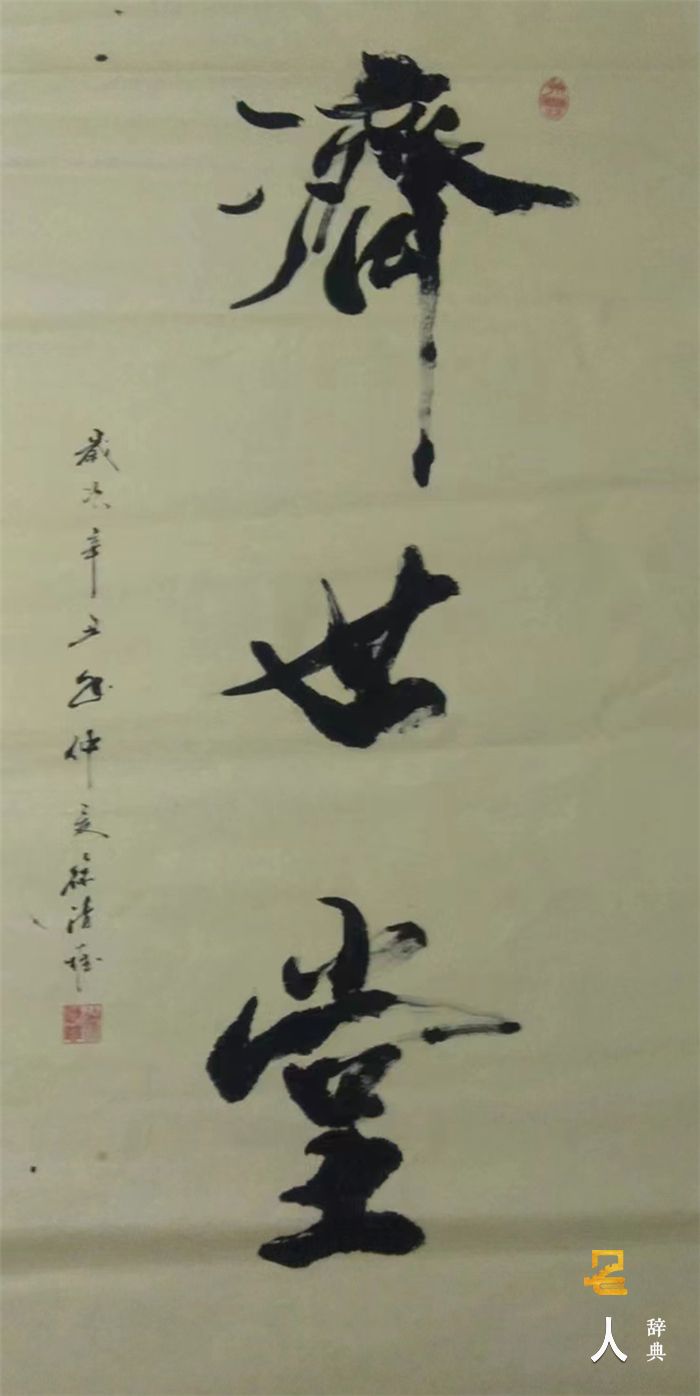 濟世堂
歲次辛丑年仲夏徐清
名人辞典